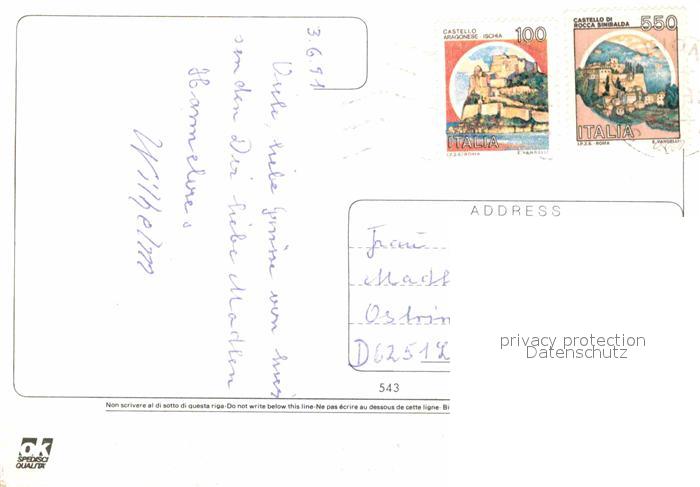 3.6.91
Viele, liebe Grüsse von hier
senden Dir liebe Madlen
Hannelore &
Wilhelm
CASTELLO
ARAGONESE - ISCHIA
100
ITALIA
I.P.Z.S. - ROMA
E. VANGELLI
CASTELLO DI
ROCCA SINIBALDA
550
ITALIA
I.P.Z.S. - ROMA
E. VANGELLI
ADDRESS
Frau
Madl
Ostrin
D6251 L
privacy protection
Datenschutz
543
Non scrivere al di sotto di questa riga-Do not write below this line-Ne pas écrire au dessous de cette ligne- Bi
ok
SPEDISCI
QUALITA'